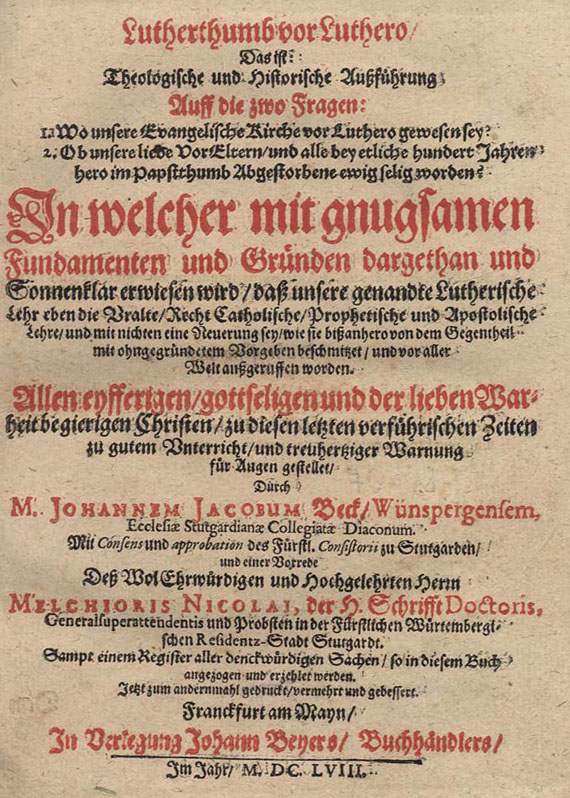 Lutherthumb vor Luthero/
Das ist:
Theologische und Historische Außführung
Auff die zwo Fragen:
1. Wo unsere Evangelische Kirche vor Luthero gewesen sey?
2. Ob unsere liebe VorEltern/und alle bey etliche hundert Jahren
hero im Papstthumb Abgestorbene ewig selig worden?
In welcher mit gnugsamen
Fundamenten und Gründen dargethan und
Sonnenklar erwiesen wird/daß unsere genandte Lutherische
Lehr eben die Uralte/Recht Catholische/Prophetische und Apostolische
Lehre/und mit nichten eine Neuerung sey/wie sie bißanhero von dem Gegentheil
mit ohngegründetem Vorgeben beschmitzet/und vor aller
Welt außgeruffen worden.
Allen eyfferigen/gottseligen und der lieben War-
heit begierigen Christen/zu diesen letzten verführischen Zeiten
zu gutem Unterricht/und treuhertziger Warnung
für Augen gestellet/
Durch
M. JOHANNEM JACOBUM Beck/Wünspergensem,
Ecclesiæ Stutgardianæ Collegiatæ Diaconum.
Mit Consens und approbation des Fürstl. Consistorii zu Stutgarden/
und einer Vorrede
Deß Wol Ehrwürdigen und Hochgelehrten Herrn
MELCHIORIS NICOLAI, der H. Schrifft Doctoris,
Generalsuperattendentis und Probsten in der Fürstlichen Würtembergi-
schen Residentz-Stadt Stutgardt.
Sampt einem Register aller denckwürdigen Sachen/so in diesem Buch
angezogen und erzehlet werden.
Jetzt zum andernmahl gedruckt/vermehrt und gebessert.
Franckfurt am Mayn/
In Verlegung Johann Beyers/Buchhändlers/
Im Jahr/M. DC. LVIII.